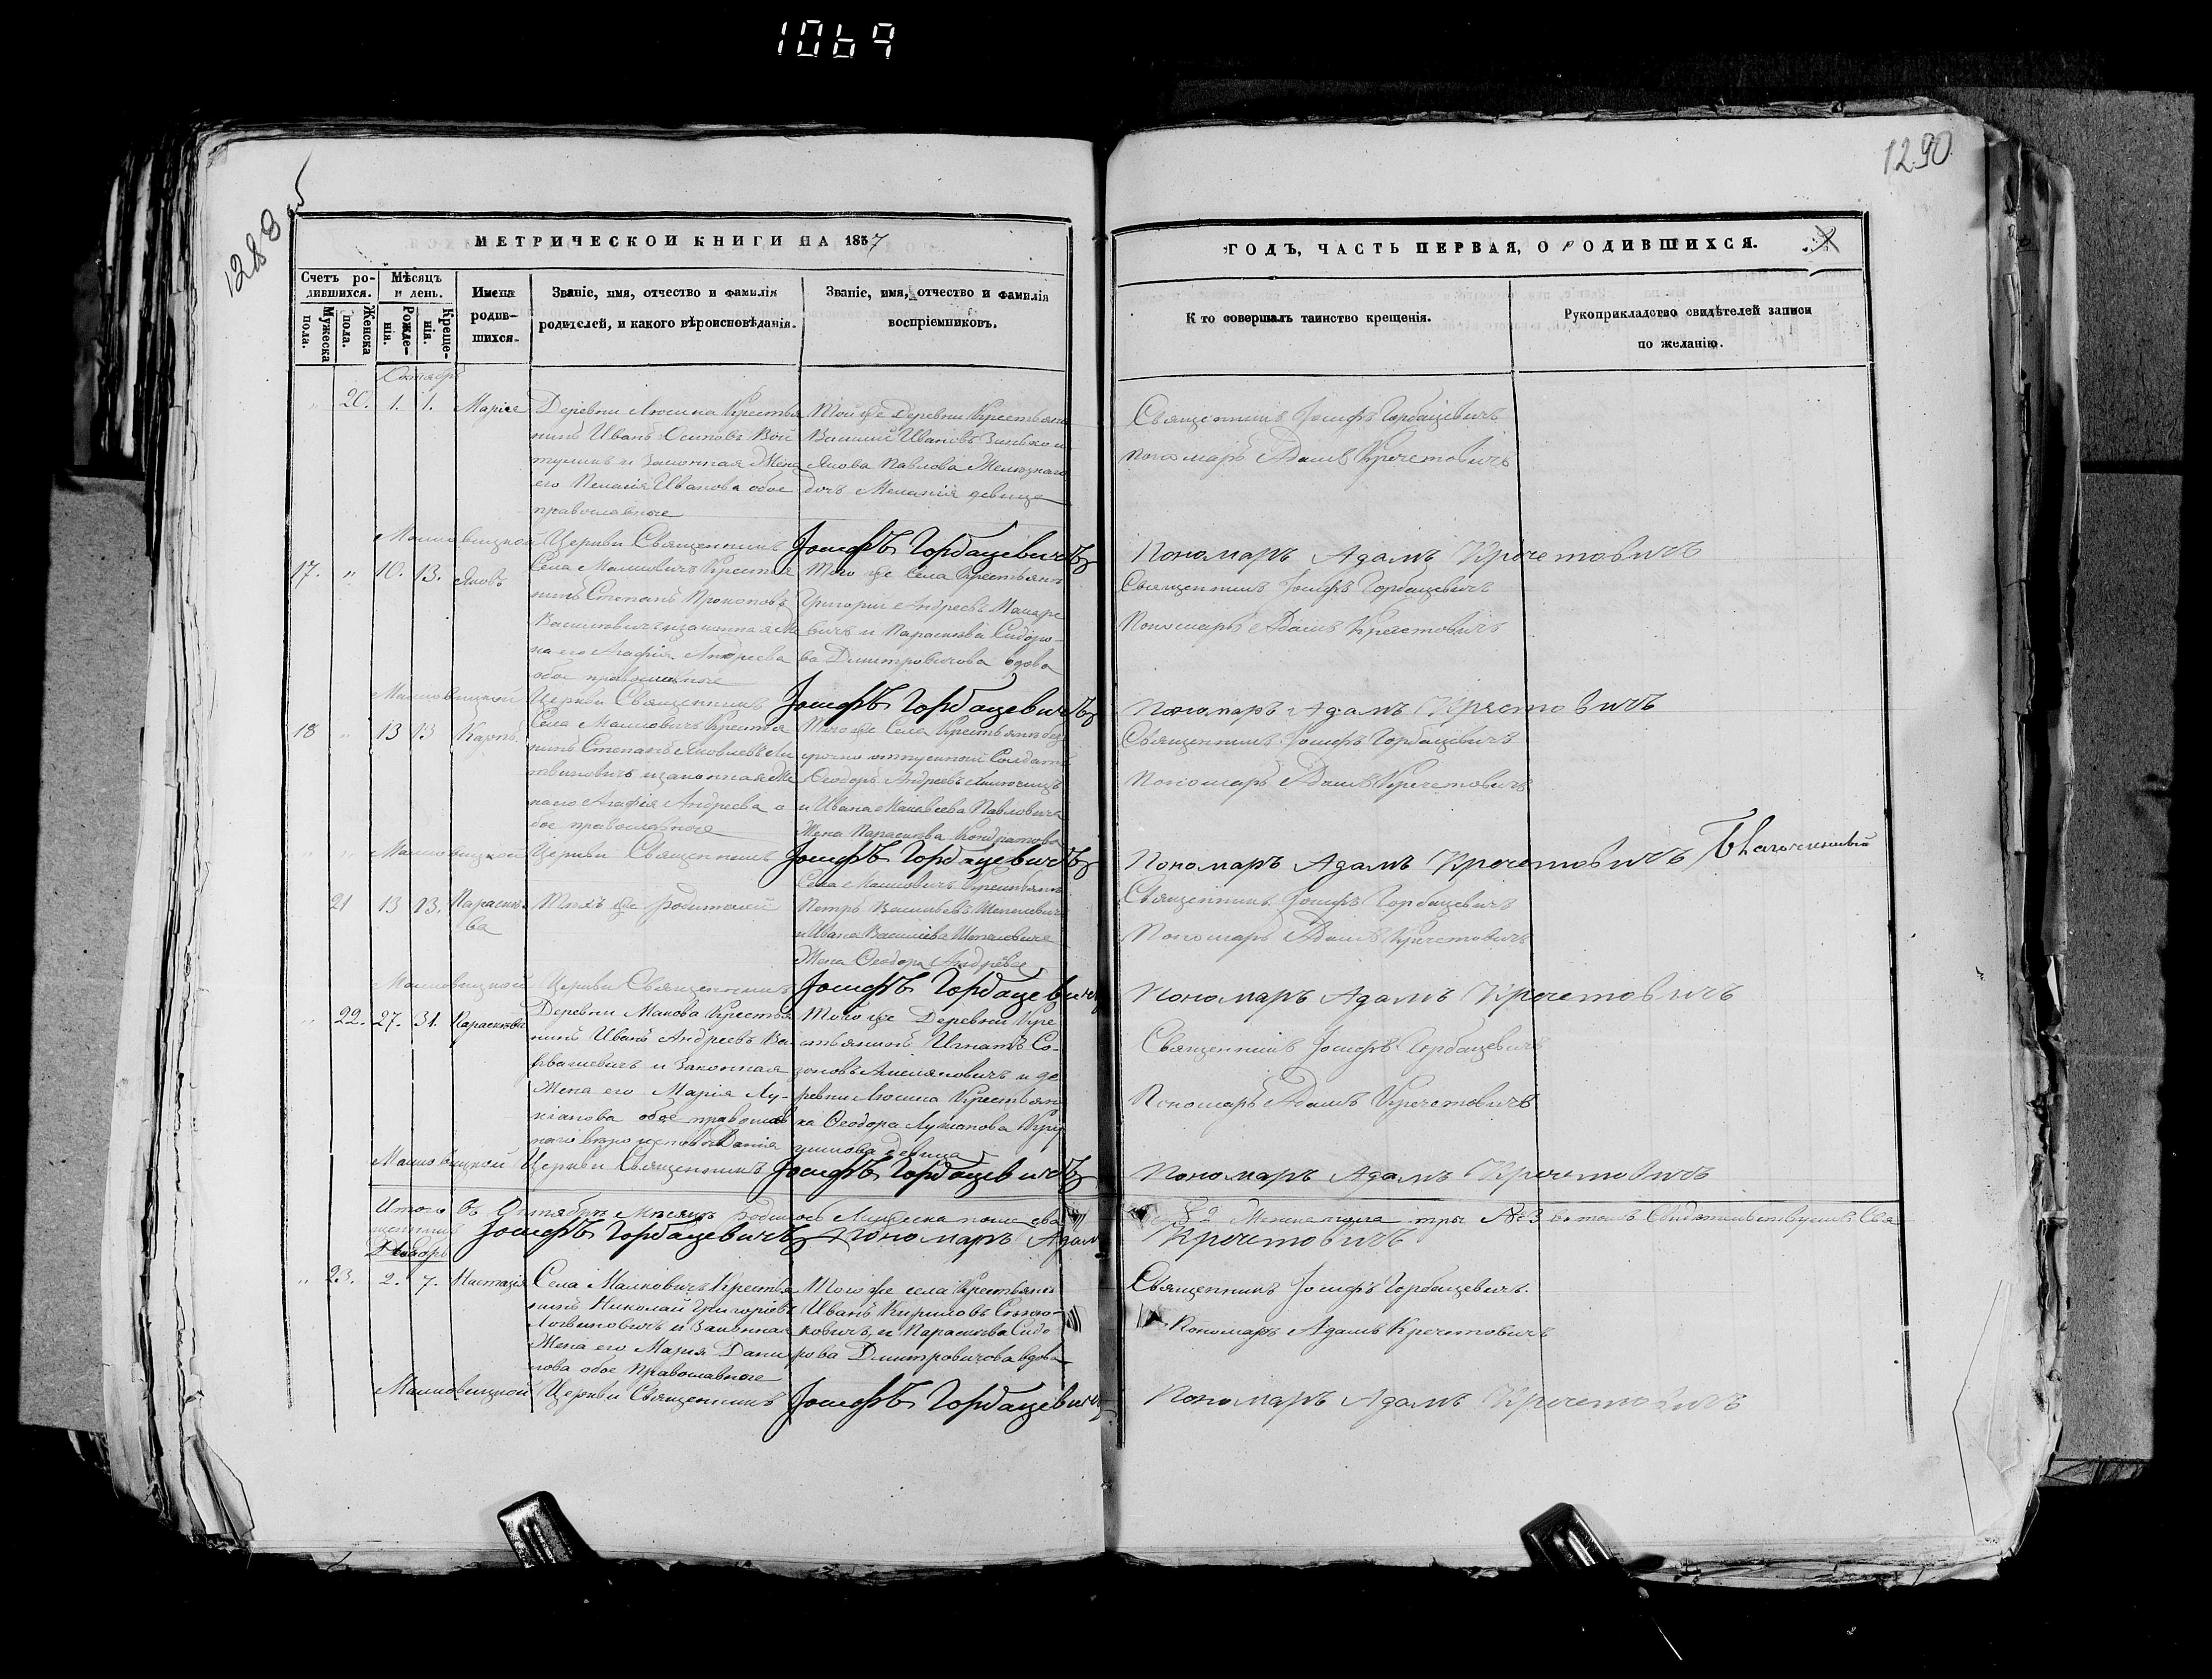 1069
1290
1289 об
МЕТРИЧЕСКОЙ КНИГИ НА 1857
ГОДЪ, ЧАСТЬ ПЕРВАЯ, О РОДИВШИХСЯ.
Счетъ ро-
дившихся.
Мужеска
пола.
Женска
пола.
Мѣсяцъ
и день.
Рожде-
нія.
Креще-
нія.
Имена
родив-
шихся.
Званіе, имя, отчество и фамилія
родителей, и какого вѣроисповѣданія.
Званіе, имя, отчество и фамилія
воспріемниковъ.
Кто совершалъ таинство крещенія.
Рукоприкладство свидѣтелей записи
по желанію.
Октябрь
" 20. 1. 1. Марія
Деревни Люсина Крестья
нинъ Иванъ Осиповъ
и Законная Жена
его Пелагія Иванова обое
православные
Той же Деревни Крестьяне
Василий Ивановъ Зинько и
Якова Павлова
дочь Мелания девица
Священникъ Іосифъ Горбацевичъ
Пономарь Адамъ Кречетовичъ
Малковицкой Церкви Священникъ Іосифъ Горбацевичъ
Пономаръ Адамъ Кречетовичъ
17. " 10. 13. Яковъ
Села Малковичъ Крестья
нинъ Степанъ Прокоповъ
Василковичъ и законная Же
на его Агафія Андреева
обое православные
Того же села Крестьянинъ
Григорій Андреевъ Макаре
вичъ и Параскева Сидоро
ва Дмитровичова вдова
Священникъ Іосифъ Горбацевичъ
Пономарь Адамъ Кречетовичъ
Малковицкой Церкви Священникъ Іосифъ Горбацевичъ
Пономаръ Адамъ Кречетовичъ
18 " 13 13 Карпъ
Села Малковичъ Крестья
нинъ Степанъ Яковлевъ Ли
твинковичъ и законная Же
на его Агафія Андреева о
бое православные
Того же Села Крестьянъ без
срочно отпускной Солдатъ
Ѳеодоръ Андреевъ
и Ивана Матвеева Павловича
Жена Параскева Кондратова
Священникъ Іосифъ Горбацевичъ
Пономарь Адамъ Кречетовичъ
Малковицкой Церкви Священникъ Іосифъ Горбацевичъ
Пономаръ Адамъ Кречетовичъ Благочинный
21 13 13. Параске
ва
Тѣхъ же родителей
Села Малковичъ Крестьянинъ
Петръ Васильевъ Шепелевичъ
и Ивана Василіева Шепелевича
Жена Ѳеодора Андреева
Священникъ Іосифъ Горбацевичъ
Пономарь Адамъ Кречетовичъ
Малковицкой Церкви Священникъ Іосифъ Горбацевичъ
Пономаръ Адамъ Кречетовичъ
" 22. 27. 31. Параскева
Деревни Макова Крестья
нинъ Иванъ Андреевъ
и Законная
Жена его Марія Лу-
кіанова обое православ
наго вѣроисповѣданія
Того же Деревни Кре
стьянинъ Игнатъ Со-
зоновъ и де
ревни Люсина Крестьян
ка Ѳеодора Лукіанова
девица
Священникъ Іосифъ Горбацевичъ
Пономарь Адамъ Кречетовичъ
Малковицкой Церкви Священникъ Іосифъ Горбацевичъ
Пономаръ Адамъ Кречетовичъ
Итого въ Октябрѣ Мѣсяцѣ родилось Мужеска пола два
№ 2 Женска пола три № 3 въ томъ Свидетельствуемъ Свя
щенникъ Іосифъ Горбацевичъ Пономаръ Адамъ
Кречетовичъ
Ноябрь
" 23. 2. 7. Настазія
Села Малковичъ Крестья
нинъ Николай Григоріевъ
Литвинковичъ и Законная
Жена его Марія Дани
лова обое Православные
Того же села Крестьянинъ
Иванъ Кириловъ
ковичъ, и Параскева Сидо
рова Дмитровичова вдова
Священникъ Іосифъ Горбацевичъ.
Пономаръ Адамъ Кречетовичъ
Малковицкой Церкви Священникъ Іосифъ Горбацевичъ
Пономаръ Адамъ Кречетовичъ